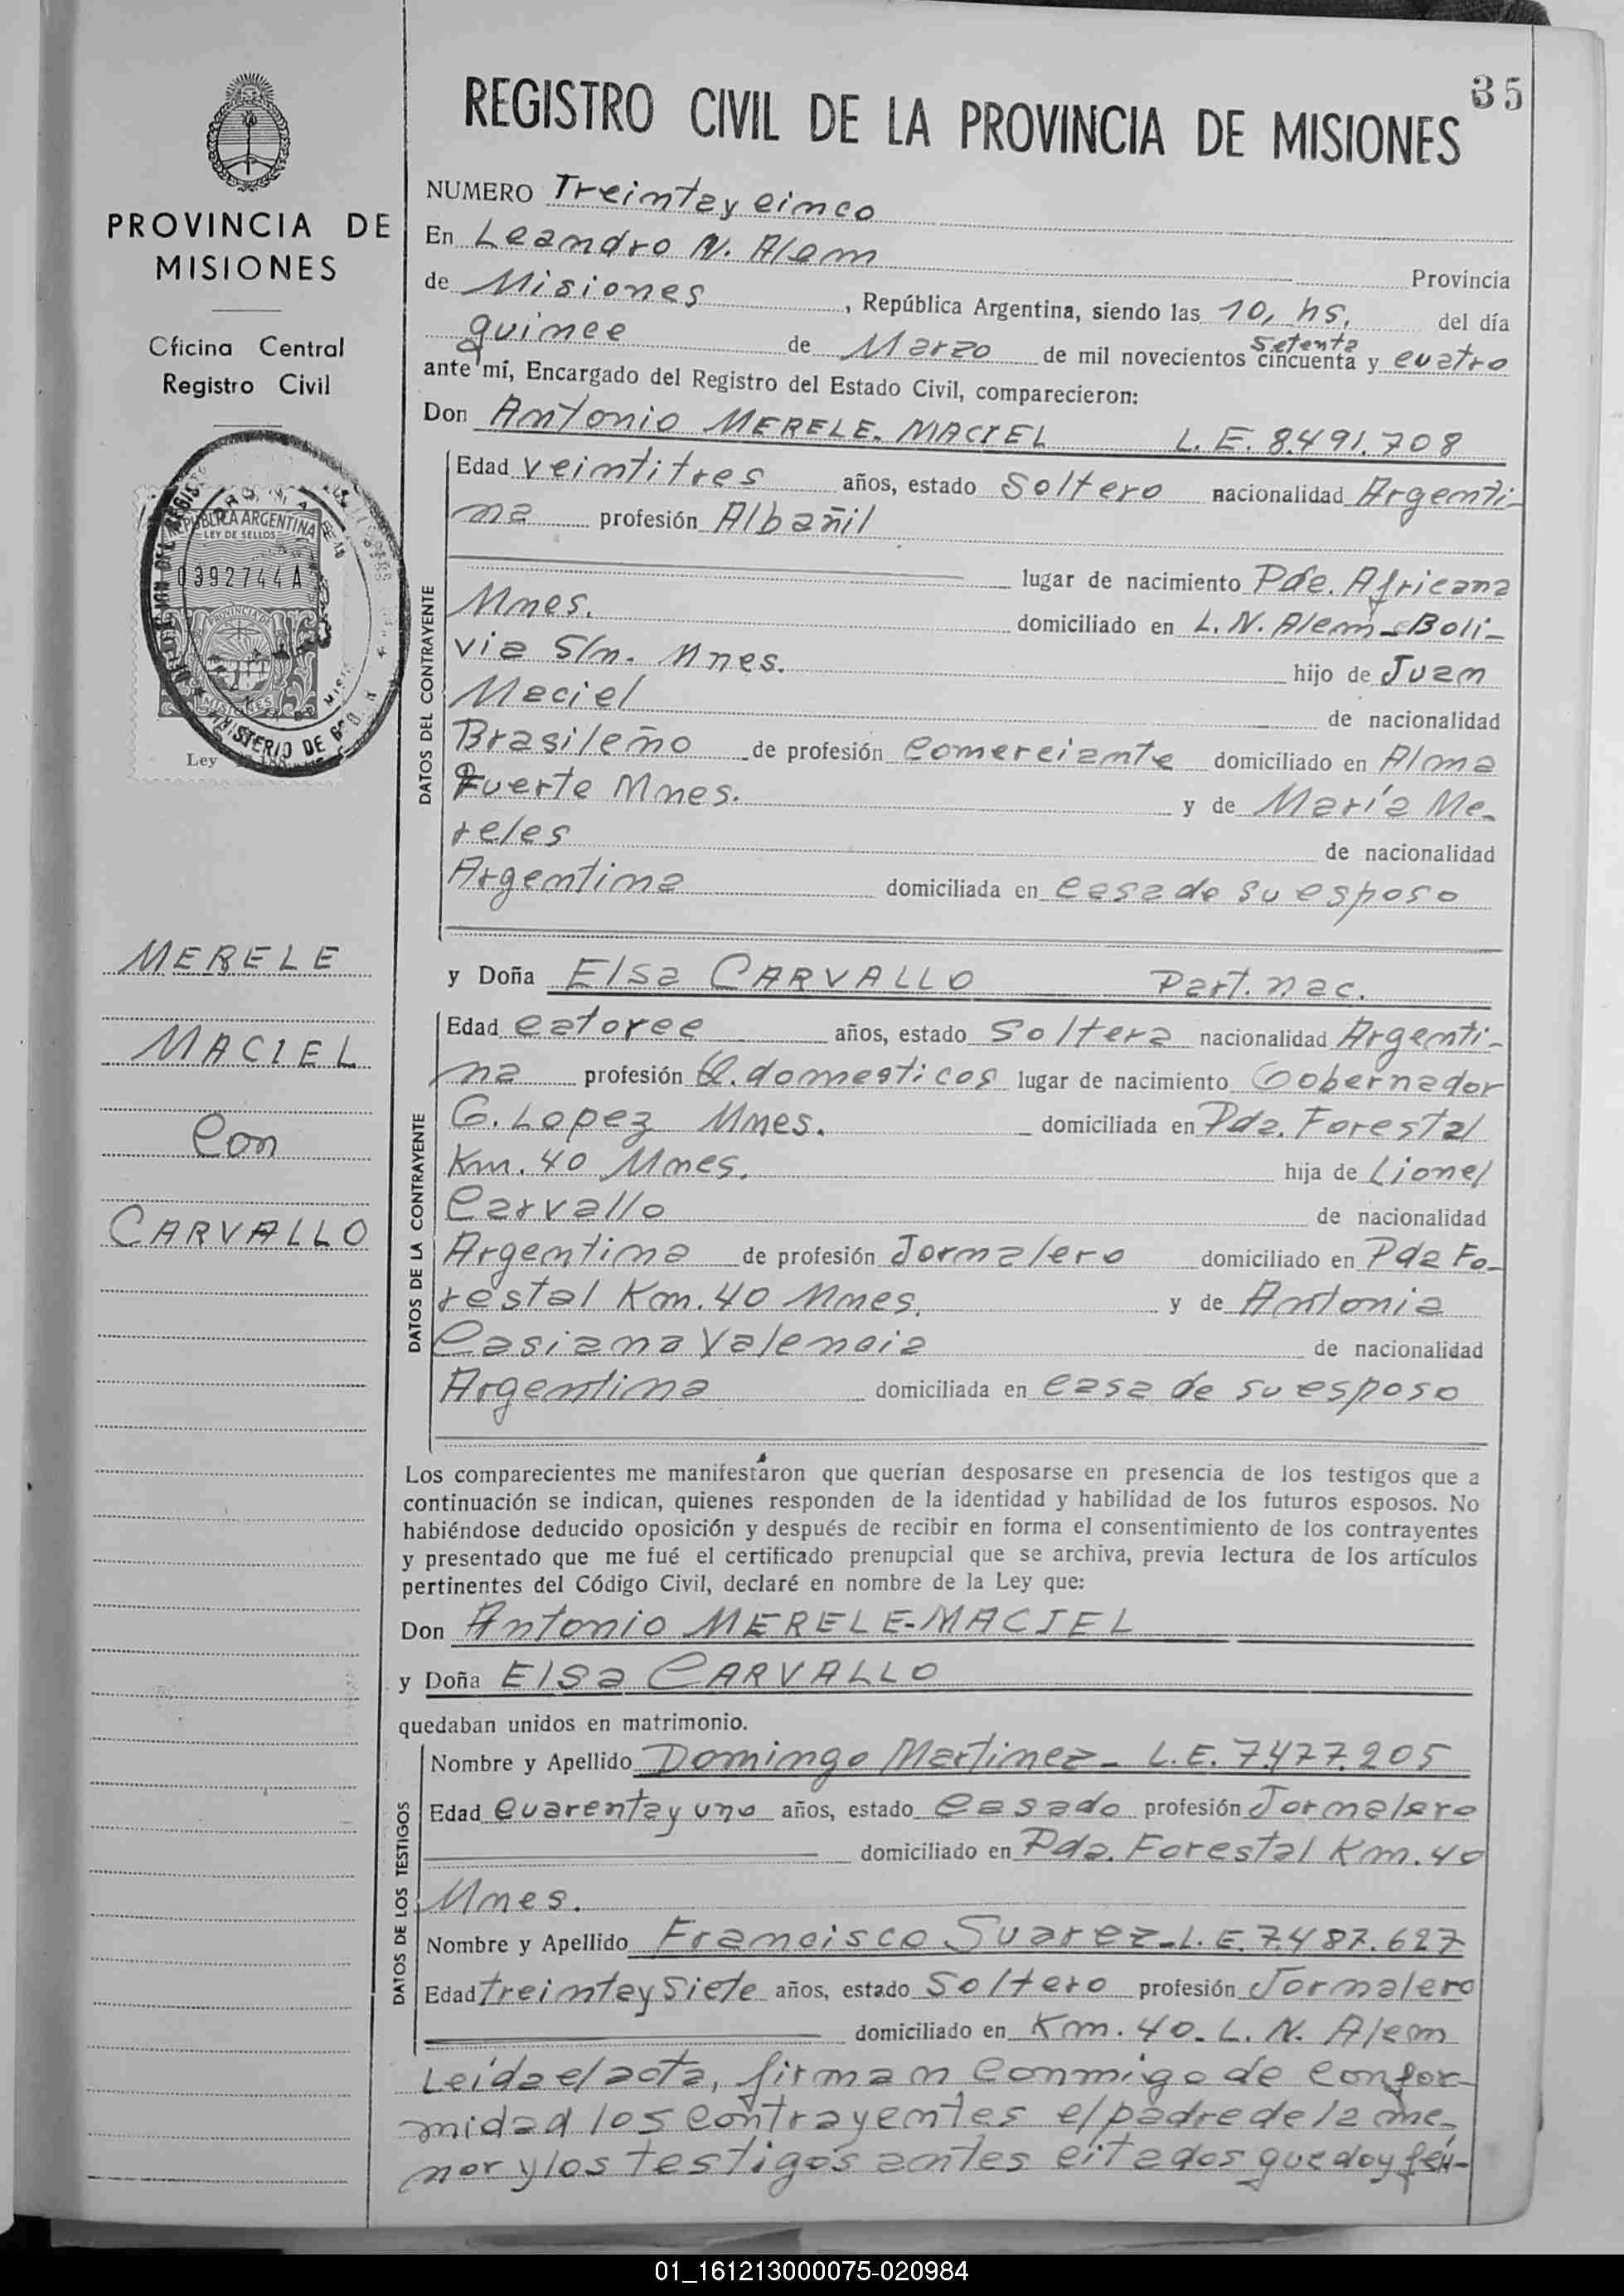 35
REGISTRO CIVIL DE LA PROVINCIA DE MISIONES
PROVINCIA DE
MISIONES
Oficina Central
Registro Civil
REPUBLICA ARGENTINA
LEY DE SELLOS
0392744 A
PROVINCIA DE
MISIONES
MINISTERIO DE
Ley
MERELE
MACIEL
Con
CARVALLO
NUMERO Treinta y cinco
En Leandro N. Alem Provincia
de Misiones, República Argentina, siendo las 10, hs, del día
quince de Marzo de mil novecientos cincuenta setenta y cuatro
ante mí, Encargado del Registro del Estado Civil, comparecieron:
Don Antonio MERELE-MACIEL L.E. 8.491.708
DATOS DEL CONTRAYENTE
Edad veintitres años, estado Soltero nacionalidad Argenti-
na profesión Albañil
lugar de nacimiento Pde. Africana
Mnes. domiciliado en L.N. Alem-Boli-
via S/n. Mnes. hijo de Juan
Maciel de nacionalidad
Brasileño de profesión Comerciante domiciliado en Alma
Fuerte Mnes. y de María Me-
reles de nacionalidad
Argentina domiciliada en casa de su esposo
y Doña Elsa CARVALLO Part. nac.
DATOS DE LA CONTRAYENTE
Edad catorce años, estado Soltera nacionalidad Argenti-
na profesión Q. domesticos lugar de nacimiento Gobernador
G. Lopez Mnes. domiciliada en Pda. Forestal
Km. 40 Mnes. hija de Lionel
Carvallo de nacionalidad
Argentina de profesión Jornalero domiciliado en Pda Fo-
restal Km. 40 Mnes. y de Antonia
Casiana Valencia de nacionalidad
Argentina domiciliada en casa de su esposo
Los comparecientes me manifestaron que querían desposarse en presencia de los testigos que a
continuación se indican, quienes responden de la identidad y habilidad de los futuros esposos. No
habiéndose deducido oposición y después de recibir en forma el consentimiento de los contrayentes
y presentado que me fué el certificado prenupcial que se archiva, previa lectura de los artículos
pertinentes del Código Civil, declaré en nombre de la Ley que:
Don Antonio MERELE-MACIEL
y Doña Elsa CARVALLO
quedaban unidos en matrimonio.
DATOS DE LOS TESTIGOS
Nombre y Apellido Domingo Martinez - L.E. 7.477.205
Edad Cuarenta y uno años, estado Casado profesión Jornalero
domiciliado en Pda. Forestal Km. 40
Mnes.
Nombre y Apellido Francisco Suarez - L.E. 7.487.627
Edad treinta y Siete años, estado Soltero profesión Jornalero
domiciliado en Km. 40. L. N. Alem
Leida el acta, firman conmigo de confor-
midad los contrayentes el padre de la me-
nor y los testigos antes citados que doy fé.-
01_161213000075-020984